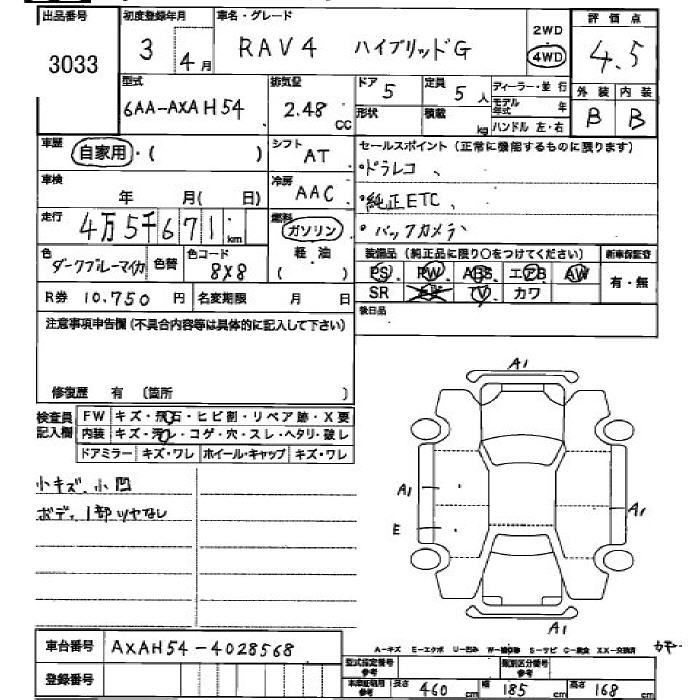 出品番号 初度登録年月 車名・グレード 2WD 評価点
3033 3 4月 RAV4 ハイブリッドG 4WD 4.5
型式 排気量 ドア 5 定員 5人 ディーラー・並行 外装 内装
6AA-AXAH54 2.48 CC 形状 積載 kg モデル年式 年 B B
ハンドル 左・右
車歴 自家用・( ) シフト AT セールスポイント (正常に機能するものに限ります)
・ドラレコ、
車検 年 月( 日) 冷房 AAC ・純正ETC、
走行 4万5千671km 燃料 ガソリン ・バックカメラ
色 ダークブルーマイカ 色替 色コード 8X8 軽油 ( ) 装備品 (純正品に限り○をつけてください) 新車保証書
PS PW ABS エアB AW 有・無
R券 10.750円 名変期限 月 日 SR TV カワ
注意事項申告欄 (不具合内容等は具体的に記入して下さい) 後日品
修復歴 有 〔箇所 〕
検査員記入欄 FW キズ・飛石・ヒビ割・リペア跡・X要
内装 キズ・汚レ・コゲ・穴・スレ・ヘタリ・破レ
ドアミラー キズ・ワレ ホイール・キャップ キズ・ワレ
小キズ、小凹
ボディ1部ツヤなし
A1
A1
A1
E
A1
車台番号 AXAH54-4028568
A-キズ E-エクボ U-凹み W-補修跡 S-サビ C-腐食 XX-交換済
登録番号 型式指定番号 参考 類別区分番号 参考
車検証記載 参考 長さ 460 cm 幅 185 cm 高さ 168 cm